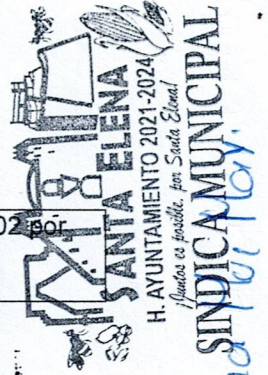 SANTA ELENA
H. AYUNTAMIENTO 2021-2024
¡Juntos es posible, por Santa Elena!
SINDICA MUNICIPAL
02 por